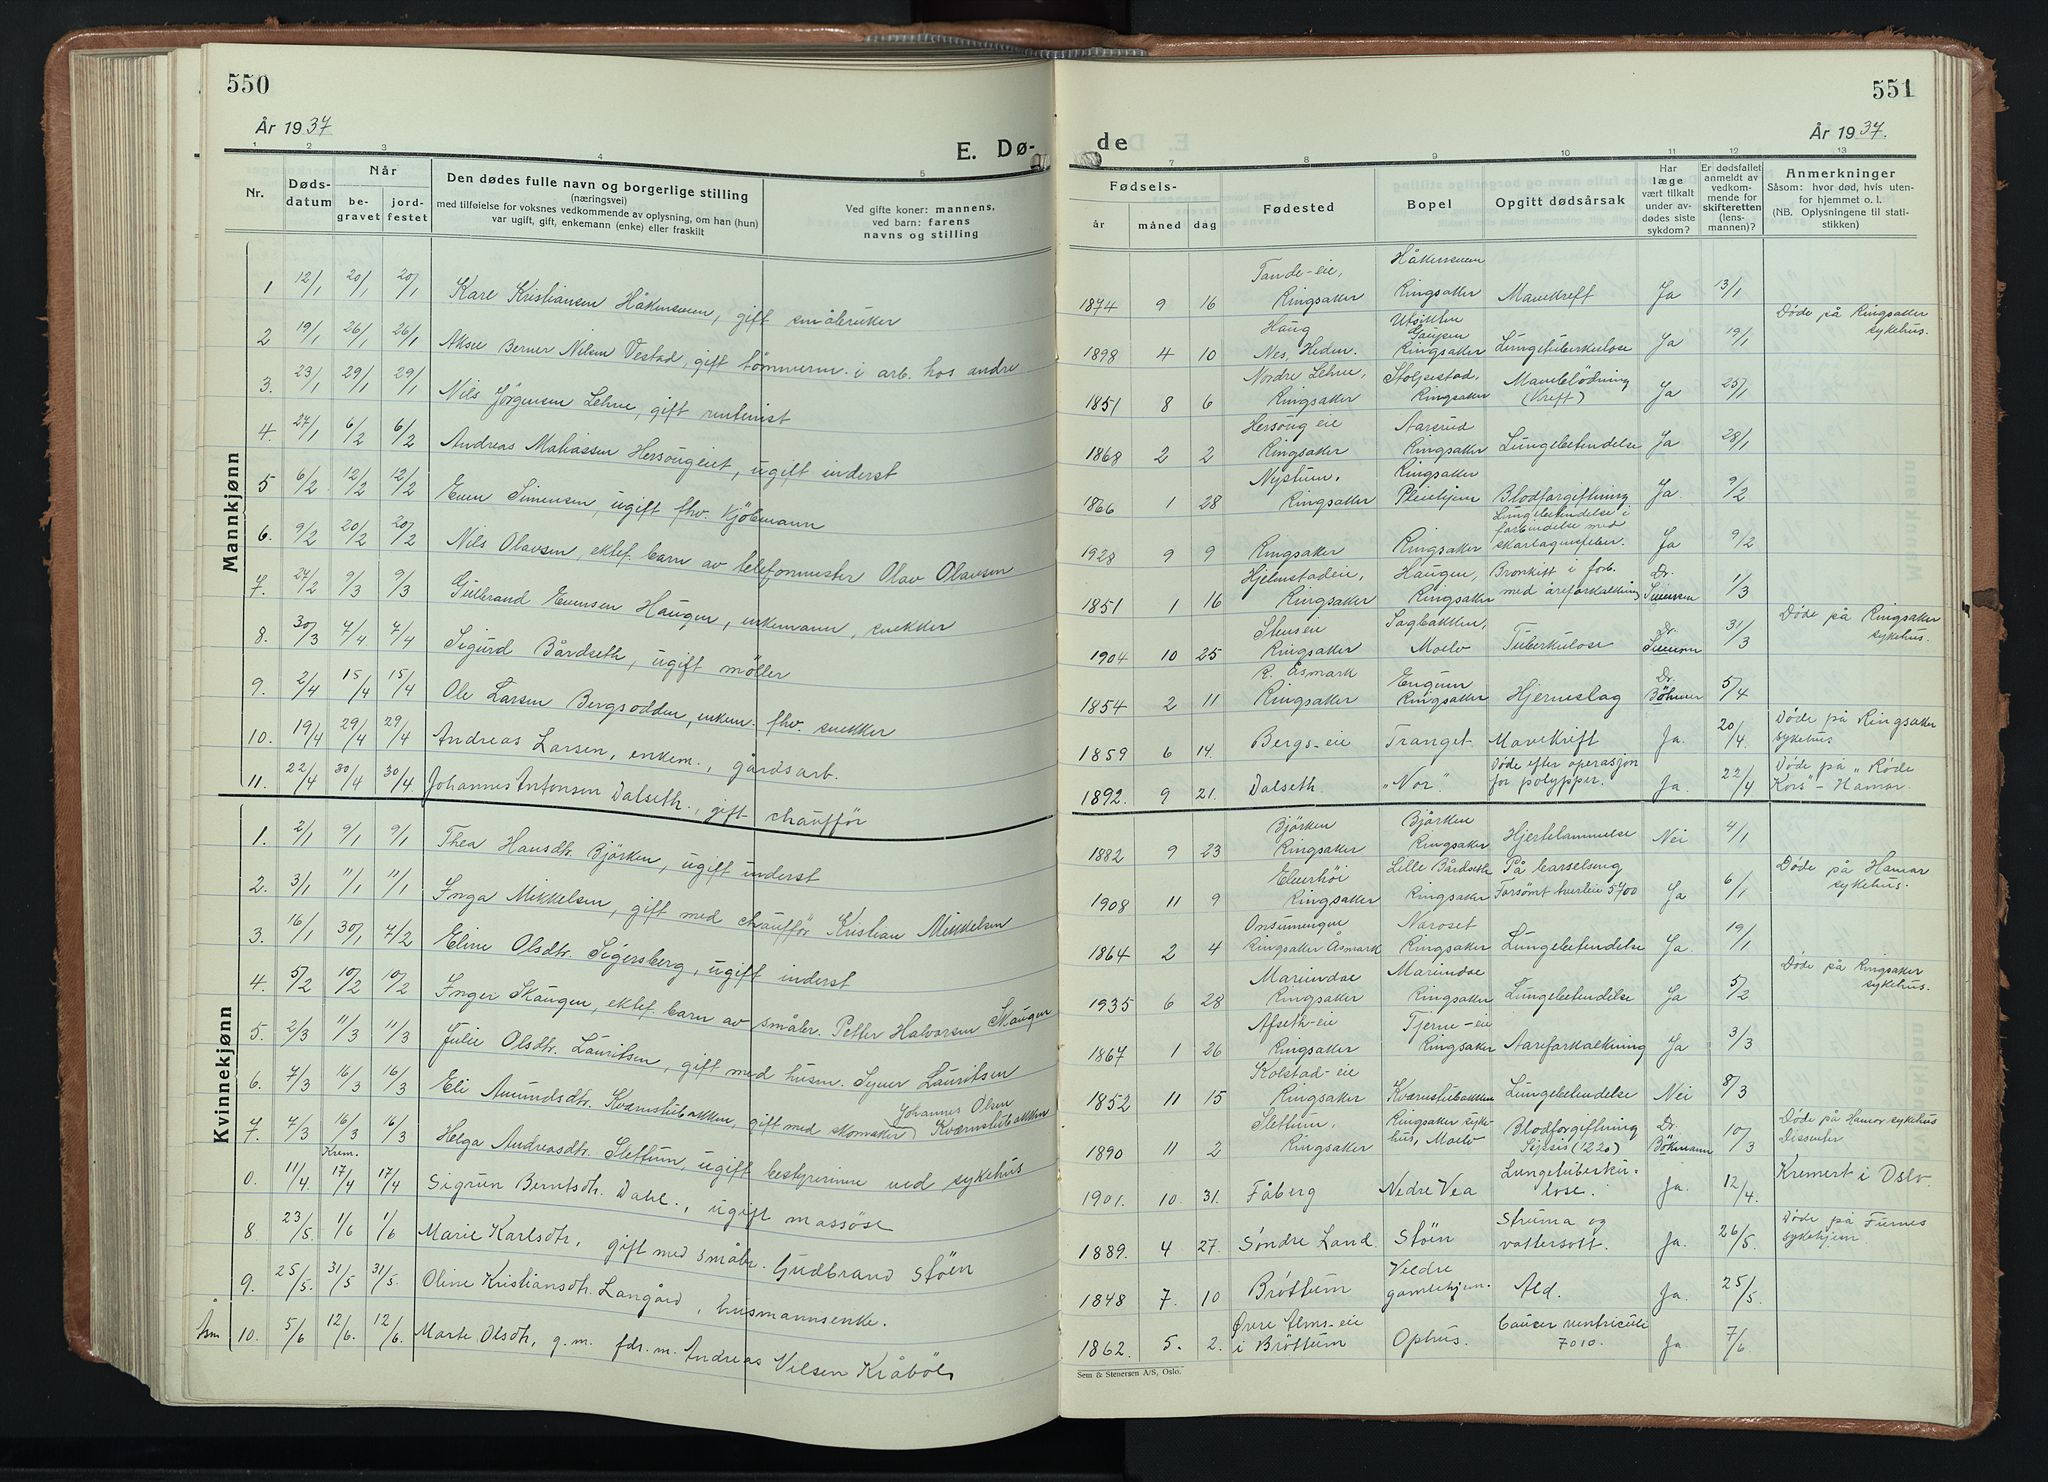 550
År 1937
E. Dø-
1 2 3 4 5
Nr.
Døds-
datum
Når
be-
gravet
jord-
festet
Den dødes fulle navn og borgerlige stilling
(næringsvei)
med tilføielse for voksnes vedkommende av oplysning, om han (hun)
var ugift, gift, enkemann (enke) eller fraskilt
Ved gifte koner: mannens,
ved barn: farens
navns og stilling
Mannkjønn
1 12/1 20/1 20/1 Kare Kristiansen Håkensveen, gift småbruker
2 19/1 26/1 26/1 Aksel Berner Nilsen Vestad, gift tömmerm. i arb. hos andre
3. 23/1 29/1 29/1 Nils Jörgensen Lehne, gift rentenist
4. 27/1 6/2 6/2 Andreas Mathiassen Hersougeiet, ugift inderst
5 6/2 12/2 12/2 Even Simensen, ugift fhv. kjöbmann
6. 9/2 20/2 20/2 Nils Olavsen, ektef. barn av telefonmester Olav Olavsen
7. 27/2 9/3 9/3 Gulbrand Evensen Haugen, enkemann, snekker
8. 30/3 7/4 7/4 Sigurd Bårdseth, ugift möller
9. 2/4 15/4 15/4 Ole Larsen Bergsodden, enkem. fhv. snekker
10. 19/4 29/4 29/4 Andreas Larsen, enkem., gårdsarb.
11. 22/4 30/4 30/4 Johannes Antonsen Dalseth, gift chaufför
Kvinnekjønn
1. 2/1 9/1 9/1 Thea Hansdtr. Björken, ugift inderst
2. 3/1 11/1 11/1 Inga Mikkelsen, gift med chaufför Kristian Mikkelsen
3. 16/1 30/1 7/2 Eline Olsdtr. Sigersberg, ugift inderst
4. 5/2 10/2 10/2 Inger Skaugen, ektef. barn av småbr. Petter Halvorsen Skaugen
5. 2/3 11/3 11/3 Julie Olsdtr. Lauritsen, gift med husm. Syver Lauritsen
6. 7/3 16/3 16/3 Eli Amundsdtr. Kværnstubakken, gift med skomaker Johannes Olsen Kværnstubakken
7. 7/3 16/3 16/3 Helga Andreasdtr. Slettum, ugift bestyrerinne ved sykehus
Krem.
0. 11/4. 17/4 17/4 Sigrun Berntsdtr. Dahl., ugift massöse
8 23/5 1/6 1/6 Marie Karlsdtr, gift med småbr. Gudbrand Stöen
9. 25/5. 31/5 31/5. Oline Kristiansdtr. Langård, husmannsenke.
10. 5/6 12/6. 12/6. Marte Olsdtr, g. m. fdr. m. Andreas Nilsen Kråböl
551
År 1937.
de
7 8 9 10 11 12 13
Fødsels-
år måned dag
Fødested
Bopel
Opgitt dødsårsak
Har
læge
vært tilkalt
under av-
dødes siste
sykdom?
Er dødsfallet
anmeldt av
vedkom-
mende for
skifteretten
(lens-
mannen)?
Anmerkninger
Såsom: hvor død, hvis uten-
for hjemmet o. l.
(NB. Oplysningene til stati-
stikken)
1874 9 16 Tande-eie, Ringsaker Håkensveen Ringsaker Mavekreft Ja 13/1
1898 4 10 Haug Nes, Hedm. Utsikten Gaupen Ringsaker Lungetuberkulose Ja 19/1 Døde på Ringsaker sykehus.
1851 8 6 Nordre Lehne, Ringsaker Stolpestad, Ringsaker Maveblödning (Kreft) Ja 25/1
1868 2 2 Hersoug eie Ringsaker Aarsrud Ringsaker Lungebetendelse Ja 28/1
1866 1 28 Nystuen, Ringsaker Ringsaker Pleiehjem Blodforgiftning Ja. 9/2
1928 9 9 Ringsaker Ringsaker Lungebetendelse i forbindelse med skarlagensfeber. Ja 9/2
1851 1 16 Hjelmstadeie, Ringsaker Haugen, Ringsaker Bronkitt i forb. med åreforkalkning Dr. Simensen 1/3
1904 10 25 Stenseie Ringsaker Sagbakken, Moelv Tuberkulose Dr. Simensen 31/3 Døde på Ringsaker sykehus.
1854 2 11 R. Åsmark Ringsaker Engum Ringsaker Hjerneslag Dr. Böhmer 5/4
1859 6 14. Bergs-eie Tranget Mavekreft Ja. 20/4. Døde på Ringsaker sykehus
1892. 9 21. Dalseth "Nor". Døde efter operasjon for polypper. Ja. 22/4 Døde på "Røde Kors" - Hamar.
1882 9 23 Björken Ringsaker Björken Ringsaker Hjertelammelse Nei 4/1
1908 11 9 Ringsaker Lille Bårdseth Ringsaker På barselseng Forsömt tverleie 5400 Ja 6/1 Døde på Hamar sykehus.
1864 2 4 Ringsaker Åsmark Naroset Ringsaker Lungebetendelse Ja. 19/1
1935 6 28 Mariendal Ringsaker Mariendal Ringsaker Lungebetendelse Ja 5/2 Døde på Ringsaker sykehus.
1867 1 26 Afseth-eie Ringsaker Tjerne-eie Ringsaker Aareforkalkning Ja 3/3
1852 11 15 Kolstad-eie Ringsaker Kværnstubakken Lungebetendelse Nei 8/3
1890 11 2 Slettum, Ringsaker Ringsaker sykehus, Moelv Blodforgiftning Sepsis (1220) Dr. Bökmann 10/3 Døde på Hamar sykehus Dissenter
1901. 10. 31. Fåberg Nedre Vea Lungetuberkulose. Ja. 12/4. Kremert i Oslo.
1889. 4 27. Søndre Land. Støen Struma og vattersott. Ja. 26/5. Døde på Furnes sykehjem.
1848 7. 10 Brøttum Veldre gamlehjem. Ald. Ja. 25/5.
1862. 5. 2. Øvre Alms-eie i Brøttum Ophus. Cancer ventriculi 7010. Ja. 7/6
Sem & Stenersen A/S, Oslo.